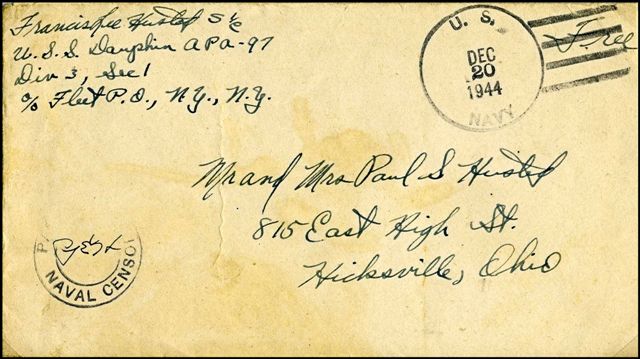 Francis Lee Husted S 1/c
U.S.S. Dauphin APA-97
Div 3, Sec 1
% Fleet P.O., N.Y., N.Y.
U. S.
DEC
20
1944
NAVY
Free
Mr and Mrs Paul S Husted
815 East High St.
Hicksville, Ohio
NAVAL CENSOR